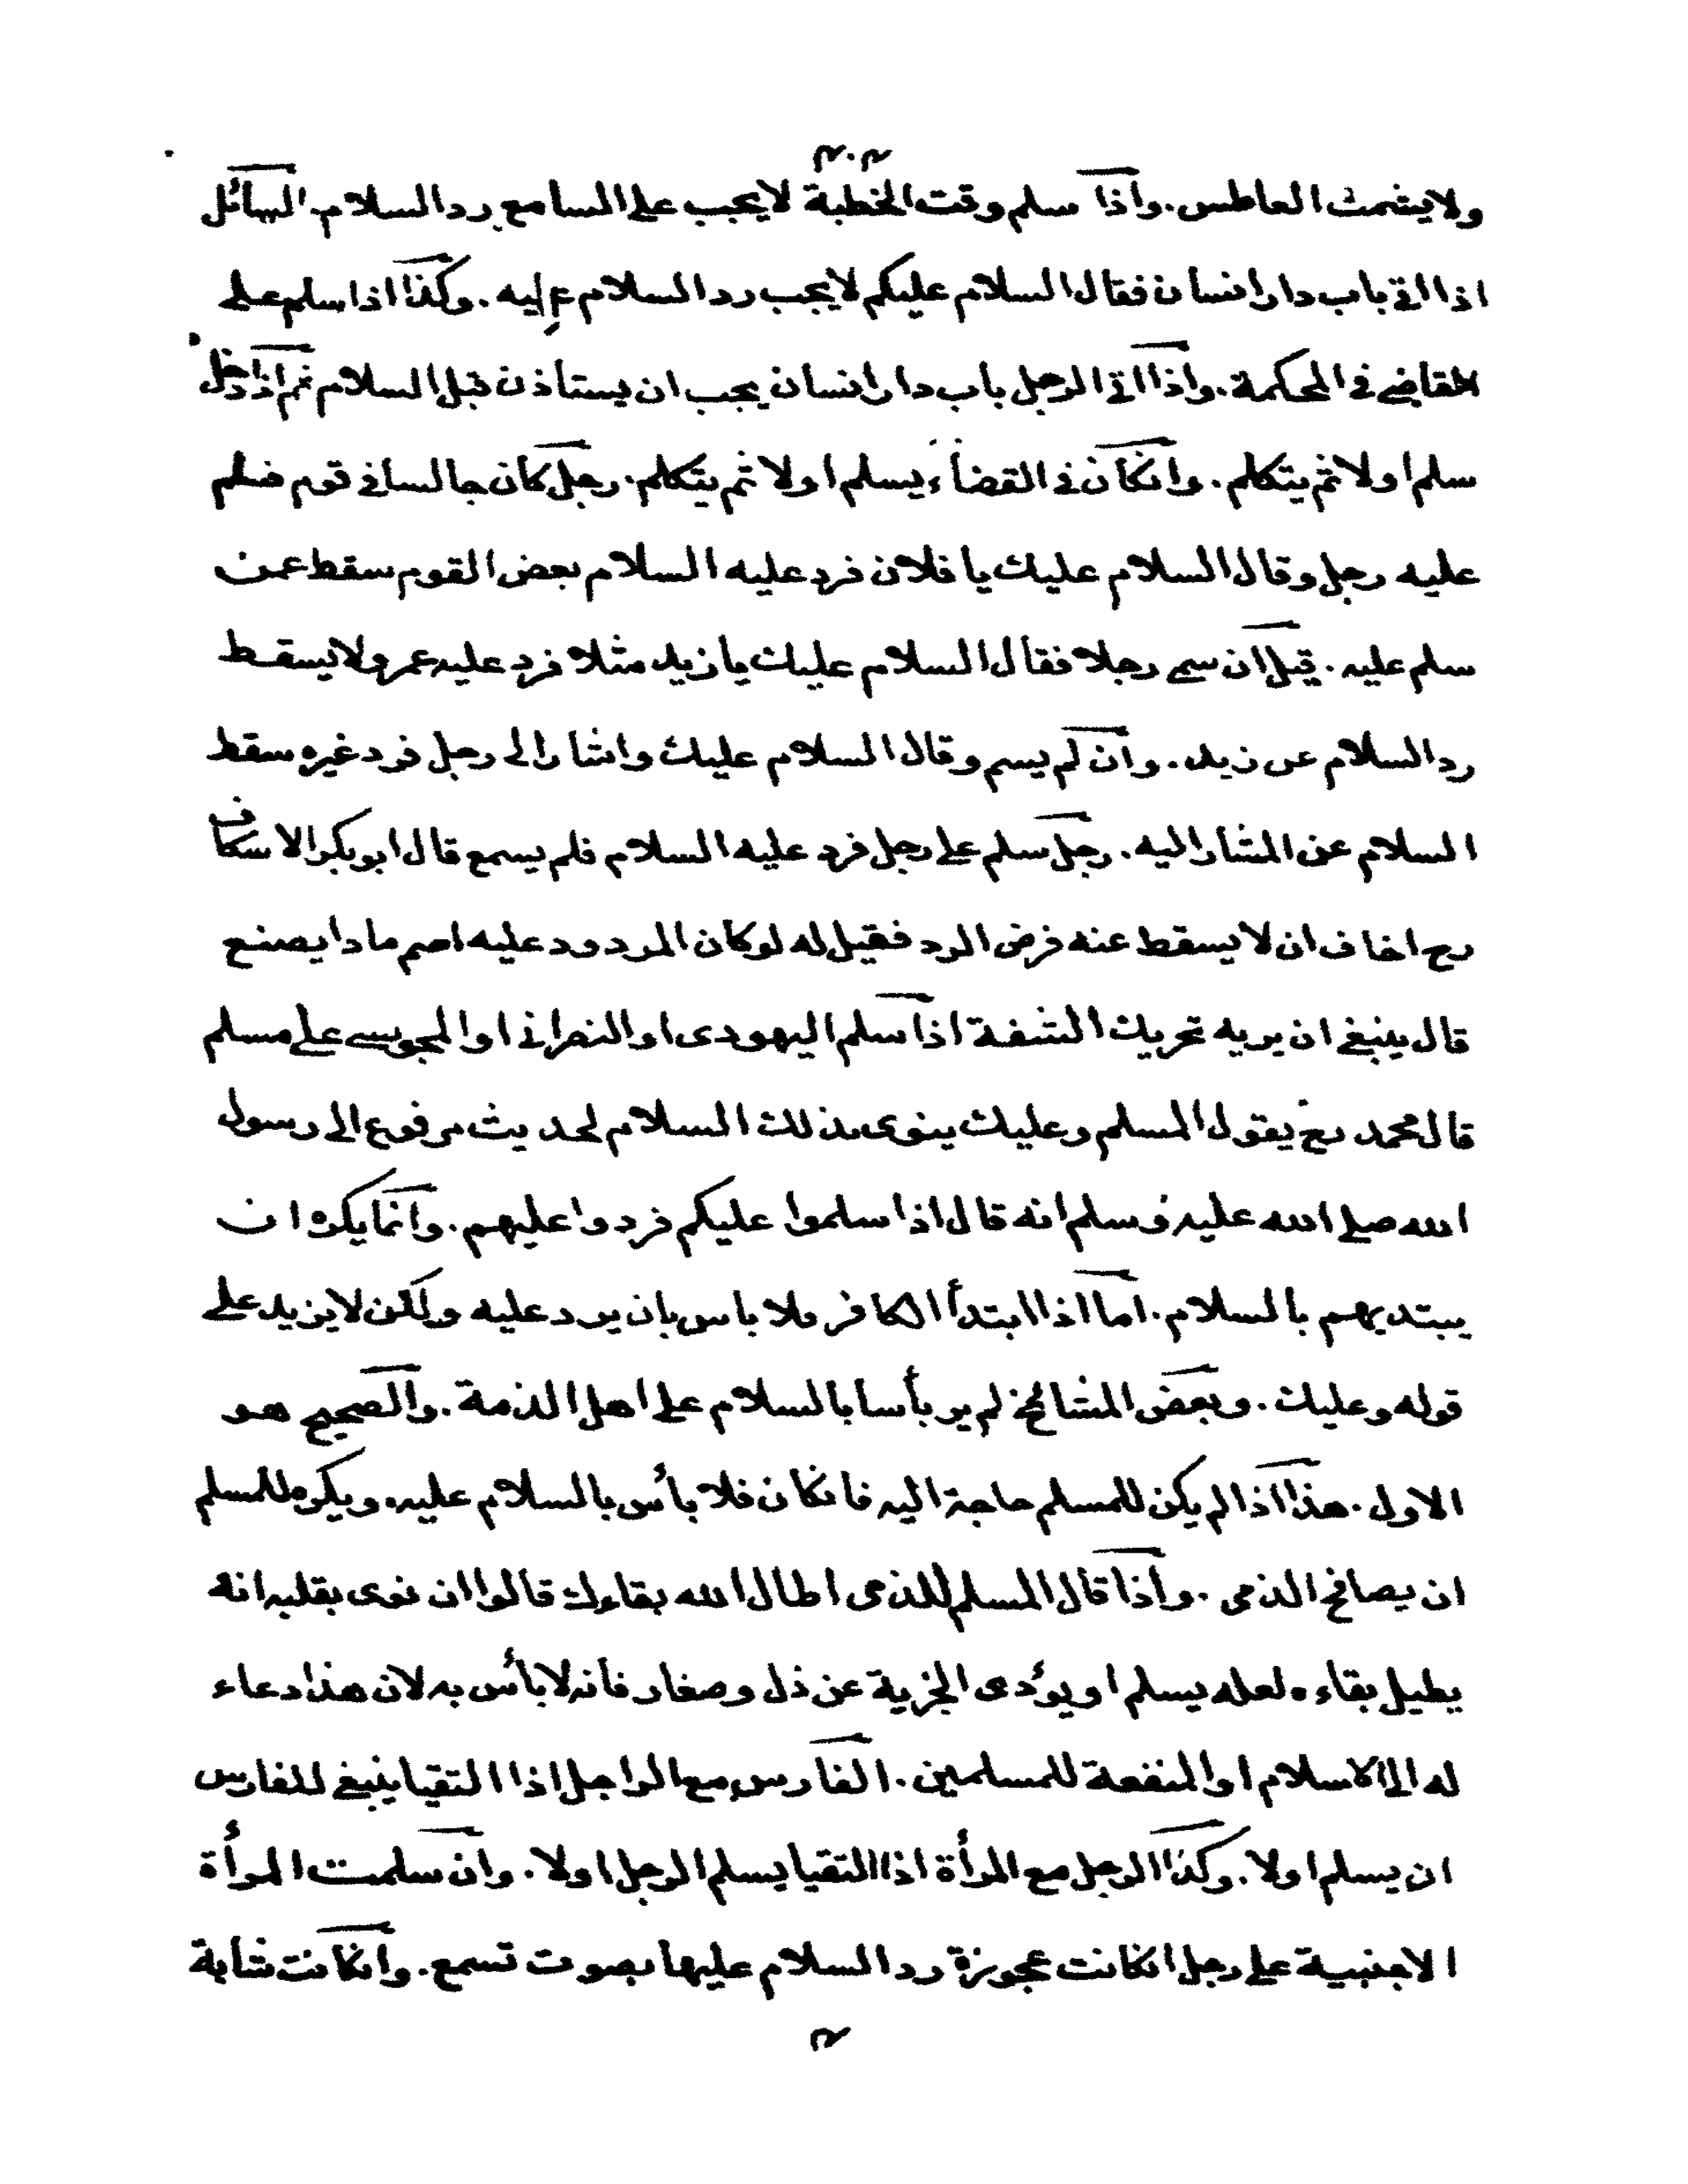 ٣٠٣
ولا يشمت العاطس. واذا سلم وقت الخطبة لا يجب على السامع رد السلام. السائل
اذا اتى باب دار انسان فقال السلام عليكم لا يجب رد السلام عليه. وكذا اذا سلم على
القاضي في المحكمة. واذا اتى الرجل باب دار انسان يجب ان يستاذن قبل السلام ثم اذا دخل
سلم اولا ثم يتكلم. وانكان في القضاء يسلم اولا ثم يتكلم. رجل كان جالسا في قوم فسلم
عليه رجل وقال السلام عليك يا فلان فرد عليه السلام بعض القوم سقط عمن
سلم عليه. قيل ان سمى رجلا فقال السلام عليك يا زيد مثلا فرد عليه عمرو لا يسقط
رد السلام عن زيد. وان لم يسم وقال السلام عليك واشار الى رجل فرد غيره سقط
السلام عن المشار اليه. رجل سلم على رجل فرد عليه السلام فلم يسمع قال ابو بكر الاسكاف
رح اخاف ان لا يسقط عنه فرض الرد فقيل له لو كان المردود عليه اصم ما دا يصنع
قال ينبغي ان يريه تحريك الشفة اذا سلم اليهودى او النصراني او المجوسي على مسلم
قال محمد رح يقول المسلم وعليك ينوى بذلك السلام لحديث مرفوع الى رسول
الله صلى الله عليه وسلم انه قال اذا سلموا عليكم فردوا عليهم. وانما يكره ان
يبتديهم بالسلام. اما اذا ابتدأ الكافر فلا باس بان يرد عليه ولكن لا يزيد على
قوله وعليك. وبعض المشائخ لم ير بأسا بالسلام على اهل الذمة. والصحيح هو
الاول. هذا اذا لم يكن للمسلم حاجة اليه فانكان فلا بأس بالسلام عليه. ويكره للمسلم
ان يصافح الذمى. واذا قال المسلم للذمى اطال الله بقاءك قالوا ان نوى بقلبه انه
يطيل بقاءه لعله يسلم او يؤدى الجزية عن ذل وصغار فانه لا بأس به لان هذا دعاء
له الى الاسلام او المنفعة للمسلمين. الفارس مع الراجل اذا التقيا ينبغي للفارس
ان يسلم اولا. وكذا الرجل مع المرأة اذا التقيا يسلم الرجل اولا. وان سلمت المرأة
الاجنبية على رجل انكانت عجوزة رد السلام عليها بصوت تسمع. وانكانت شابة